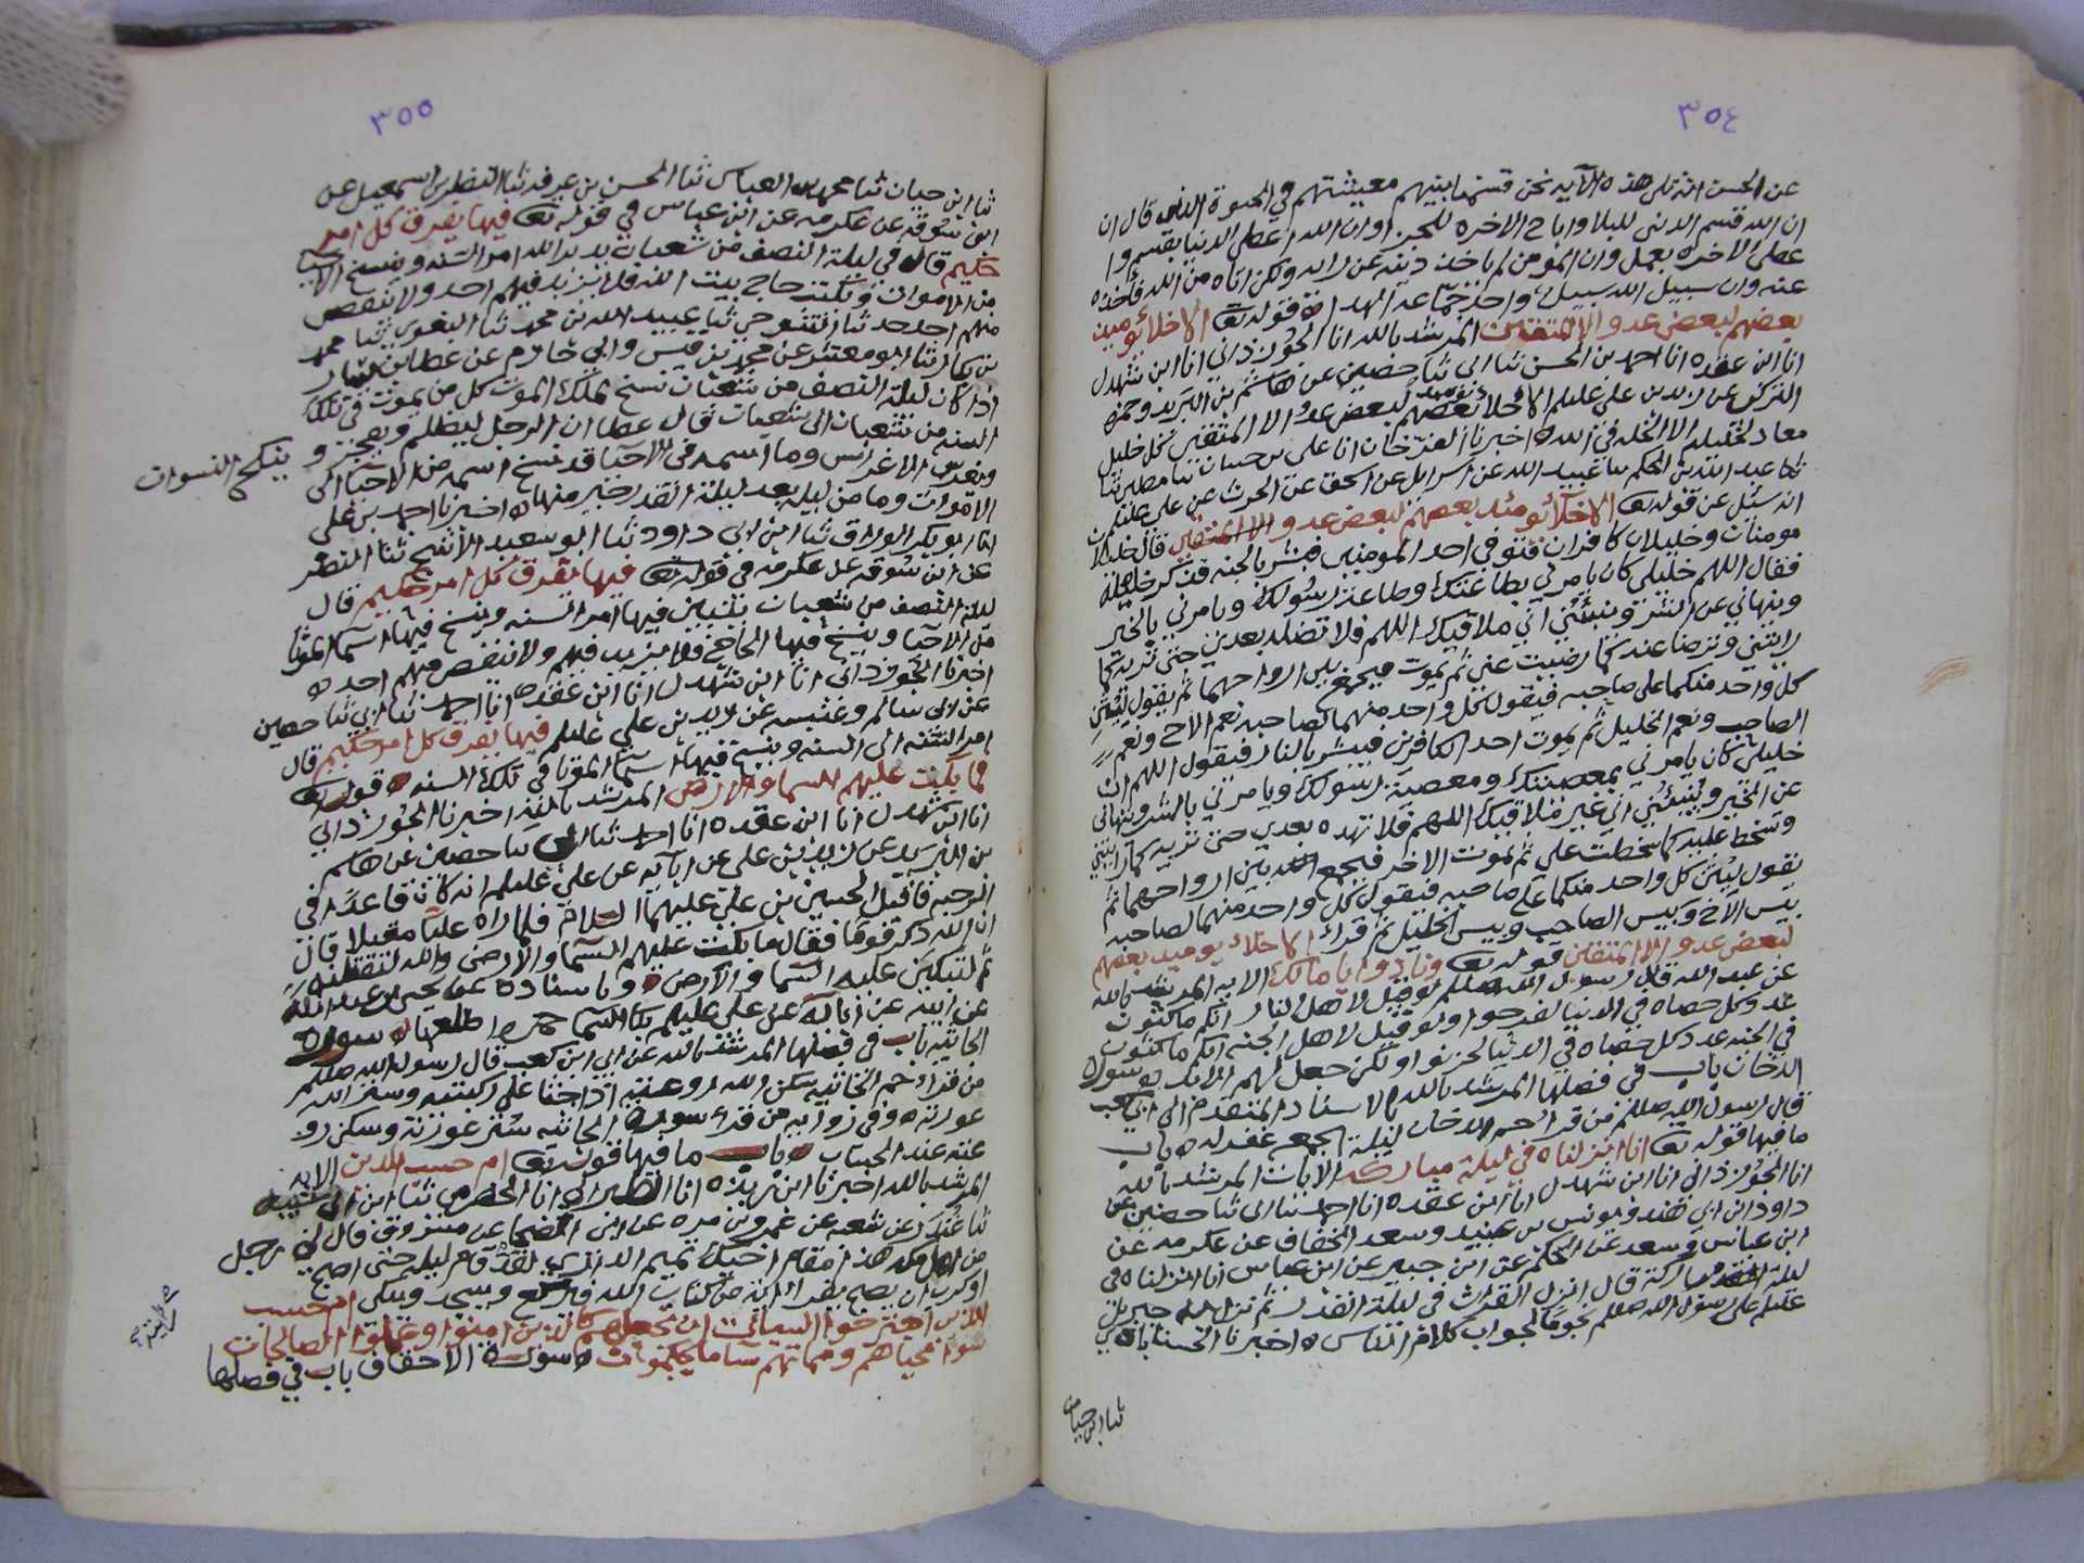 ٣٥٤
عن الحسن انه تلى هذه الآية نحن قسمنا بينهم معيشتهم في الحيوة الدنيا قال ان
ان الله قسم الدنى للبلا واباح الاخره للجزا وان الله اعطى الدنيا بقسم وا
عطى الاخره بعمل وان المومن لم ياخذ دينه عن رايه ولكن اتاه من الله فأخذه
عنه وان سبيل الله سبيل واحد قوله تع الاخلآ يومئذ
بعضهم لبعض عدو الا المتقين المرشد بالله انا الجوزذاني انا ابن شهدل
انا ابن عقده انا احمد بن الحسن ثنا ابى ثنا حضين عن هاشم بن البريد وحمزه
التركي عن زيد بن علي عليلم الأخلآ بعضهم لبعض عدو الا المتقين كل خليل
معاد لخليله الا الخله في الله ه اخبرنا انا علي بن حسان ثنا مطين ثنا
عبيد الله عن اسرايل عن اسحق عن الحرث عن علي عليلم
انه سئل عن قوله تع الاخلآ يومئذ بعضهم لبعض عدو الا المتقين قال خليلان
مومنان وخليلان كافران فتوفي احد المومنين فبشر بالجنه فذكر خليله
فقال اللهم خليلي كان يامرني بطاعتك وطاعة رسولك ويامرني بالخير
وينهاني عن الشر وينبئني اني ملاقيك اللهم فلا تضله بعدي حتى تريه كما
رايتني وترضا عنه كما رضيت عني ثم يموت فيجمع بين ارواحهما ثم يقول ليثن
كل واحد منكما على صاحبه فيقول كل واحد منهما لصاحبه نعم الأخ ونعم
الصاحب ونعم الخليل ثم يموت احد الكافرين فيبشر بالنار فيقول اللهم ان
خليلي كان يامرني بمعصيتك ومعصية رسولك ويامرني بالشر وينهاني
عن الخير وينبئني اني غير ملاقيك اللهم فلا تهده بعدي حتى تريه كما رايتني
وتسخط عليه كما سخطت علي ثم يموت الاخر فيجمع الله بين ارواحهما ثم
يقول ليثن كل واحد منكما على صاحبه فيقول كل واحد منهما لصاحبه
بيس الأخ وبيس الصاحب وبيس الخليل ثم قراء الاخلاء يوميد بعضهم
لبعض عدو الا المتقين قوله تع ونادوا يا مالك الايه المرشد بالله
عن عبد الله قال رسول الله صللم لو قيل لاهل النار انكم ماكثون
عدد كل حصاه في الدنيا لفرحوا ولو قيل لاهل الجنه انكم ماكثون
في الجنه عدد كل حصاه في الدنيا لحزنوا ولكن جعل لهم الابد ه سورة
الدخان باب في فضلها المرشد بالله بالاسناد المتقدم الى ابي كعب
قال رسول الله صللم من قرأ حم الدخان ليلة الجمعه غفر له ه باب
ما فيها قوله تع انا انزلناه في ليلة مباركه الايات المرشد بالله
انا الجوزذاني انا ابن شهدل انا ابن عقده انا احمد ثنا ابى ثنا حضين عن
داود ابن ابي هند ويونس بن عبيد وسعد الخفاف عن عكرمه عن
ابن عباس وسعد عن الحكم عن ابن جبير عن ابن عباس انا انزلناه في
ليلة مباركة قال انزل القرآن في ليلة القدر ثم نزل به جبريل
عليلم على رسول الله صللم نجوما لجواب كلام الناس ه اخبرنا الحسناباذي
ثنا ابن حيان
٣٥٥
ثنا ابن حيان ثنا محمد بن العباس ثنا الحسن بن عرفه ثنا النضر بن اسمعيل عن
ابن سوقه عن عكرمه عن ابن عباس في قوله تع فيها يفرق كل امر
حكيم قال في ليلة النصف من شعبان يدبر الله امر السنه وينسخ الاحيا
من الاموات ويكتب حاج بيت الله فلا يزيد فيهم احد ولا ينقص
منهم احد حدثنا التنوخي ثنا عبيد الله بن محمد ثنا البغوي ثنا محمد
بن بكار ثنا ابو معشر عن محمد بن قيس وابي حازم عن عطا بن يسار
اذا كان ليلة النصف من شعبان نسخ لملك الموت كل من يموت في تلك
السنه من شعبان الى شعبان قال عطا ان الرجل ليظلم ويفجر و ينكح النسوان
ويغرس الاغراس وما اسمه في الاحيا قد نسخ اسمه من الاحيا الى
الاموات وما من ليله بعد ليلة القدر خير منها ه اخبرنا احمد بن علي
انا ابو بكر الوراق ثنا ابن ابي داود ثنا ابو سعيد الأشج ثنا النضر
عن ابن سوقه عن عكرمه في قوله تع فيها يفرق كل امر حكيم قال
ليلة النصف من شعبان يبين فيها امر السنه وينسخ فيها اسما الموتا
من الاحيا وينسخ فيها الحاج فلا يزيد فيهم ولا ينقص منهم احد ه
اخبرنا الجوزذاني انا ابن شهدل انا ابن عقده انا احمد ثنا ابي ثنا حصين
عن ابى سالم وعنبسه عن زيد بن علي عليلم فيها يفرق كل امر حكيم قال
امر السنه الى السنه وينسخ فيها اسما الموتا في تلك السنه ه قوله تع
فما بكت عليهم السما والارض المرشد بالله اخبرنا الجوزذاني
انا ابن شهدل انا ابن عقده انا احمد ثنا ابى ثنا حصين عن هاشم
بن البريد عن زيد بن علي عن ابآيه عن علي عليلم انه كان قاعدا في
الرحبه فاقبل الحسين بن علي عليهما السلام فلما راه عليا مقبلا قال
ان الله ذكر قوما فقال ما بكت عليهم السما والارض والله لتقتلنه
ثم لتبكين عليه السما والارض ه وباسناده عن عبد الله
عن ابيه عن ابآئه عن علي عليلم بكا السما سورة
الجاثيه باب في فضلها المرشد بالله عن ابي ابن كعب قال رسول الله صللم
من قراء حم الجاثيه سكن الله روعته اذا جثا على ركبتيه وستر الله
عورته ه وفي روايه من قراء سورة الجاثيه ستر عورته وسكن رو
عته عند الحساب ه باب ما فيها قوله تع ام حسب الذين الايه
المرشد بالله اخبرنا ابن ريذه انا الطبراني انا الحضرمي ثنا ابن ابى شيبه
ثنا غندر عن شعبه عن عمرو بن مره عن ابي الضحا عن مسروق قال لي رجل
من اهل مكه هذا مقام اخيك تميم الداري لقد قام ليله حتى اصبح
او كرب ان يصبح يقرا اية من كتاب الله فيركع ويسجد ويبكي ام حسب
الذين اجترحوا السيائت ان نجعلهم كالذين امنوا وعملوا الصالحات
سواً محياهم ومماتهم سا ما يحكمون ه سورة الاحقاف باب في فضلها